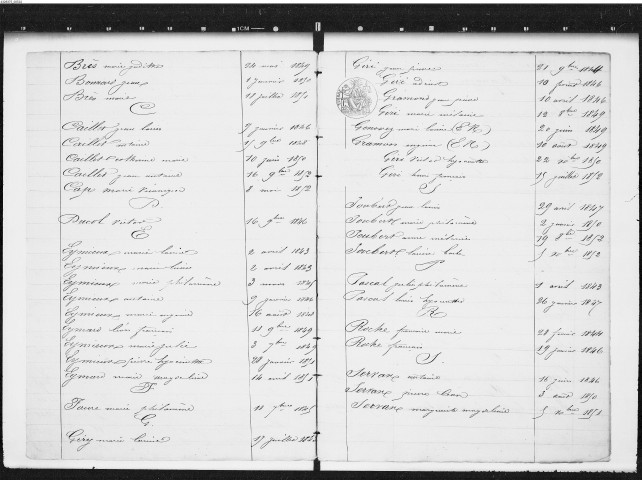 Brès marie judith 24 mai 1849
Bonnard jean 1 janvier 1850
Brès marie 18 juillet 1850
C
Caillet jean louis 9 janvier 1846
Caillet antoine 15 9bre 1848
Caillet marie 10 juin 1850
Caillet jean antoine 16 9bre 1852
Cape marie 8 mai 1852
D
Ducol victor 16 9bre 1846
E
Eymieux marie louise 2 avril 1843
Eymieux marie louise 2 avril 1843
Eymieux marie philomène 3 mars 1845
Eymieux antoine 9 janvier 1846
Eymieux marie 16 août 1848
Eymard léon françois 11 9bre 1849
Eymieux marie julie 3 7bre 1849
Eymieux pierre hyacinthe 28 janvier 1851
Eymard marie magdeleine 14 avril 1851
F
Faure marie philomène 11 7bre 1845
G
Gérey marie louise 17 juillet 1843
Giré jean pierre 21 9bre 1844
Giré 10 février 1846
Gramond jean pierre 10 avril 1846
Giré marie mélanie 12 8bre 1849
marie louise (E N) 20 juin 1849
Gramond (E N) 10 août 1849
Giré victor hyacinthe 22 1850
Giré jean françois 15 juillet 1852
J
Joubert jean louis 29 avril 1847
Joubert marie philomène 2 janvier 1850
Joubert marie mélanie 19 8bre 1852
Joubert louise 5 1852
P
Pascal julie philomène 1 avril 1843
Pascal louis hyacinthe 26 janvier 1847
R
Roche marie 28 1844
Roche françois 19 janvier 1846
S
Servans antoine 16 juin 1846
Servans pierre léon 3 août 1850
Servans marguerite magdeleine 5 1851